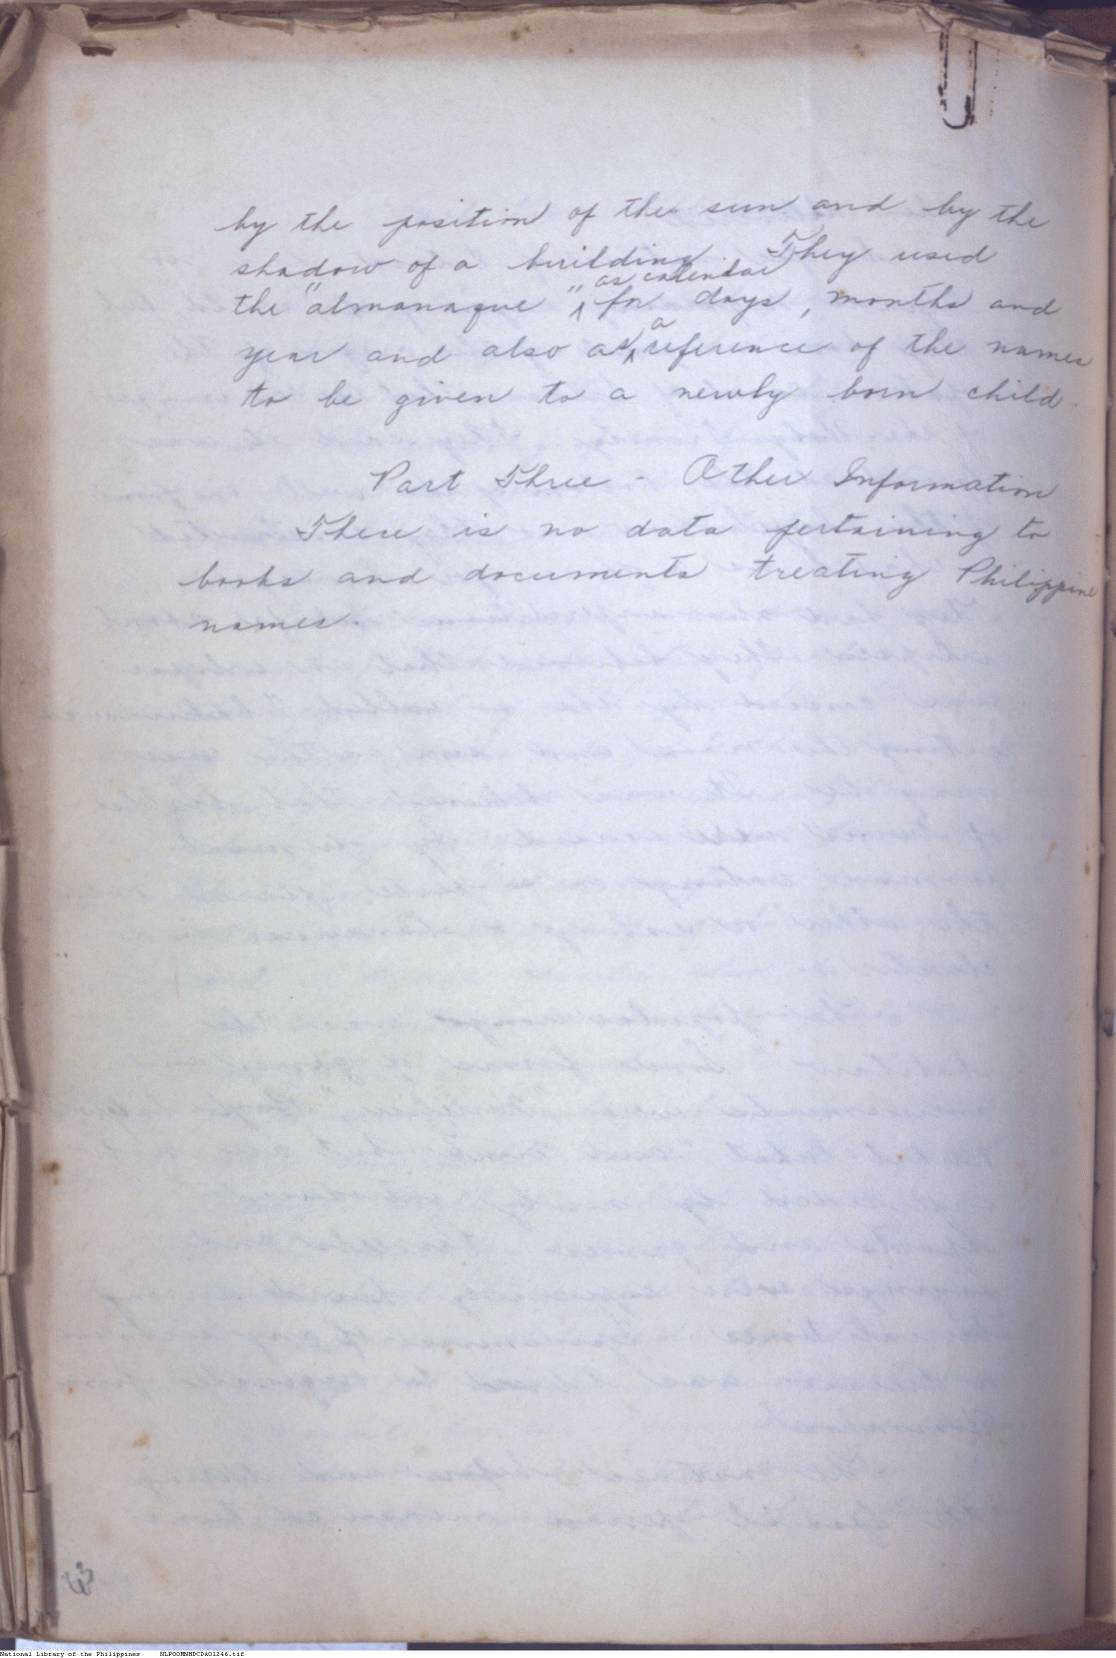 by the position of the sun and by the
shadow of a building. They used
the "almanaque" as calendar for days, months and
year and also as a reference of the names
to be given to a newly born child.
Part Three - Other Information
There is no data pertaining to
books and documents treating Philippine
names.
National Library of the Philippines NLPOOMNHDCDA01246.tif